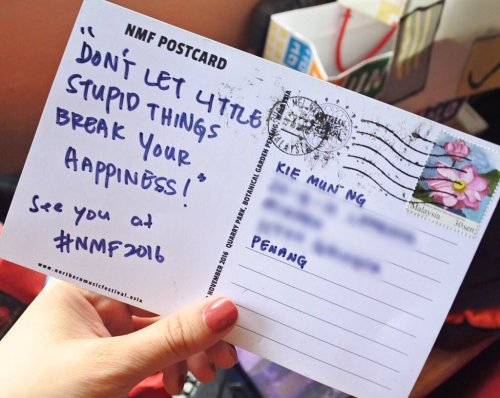 NMF POSTCARD
"DON'T LET LITTLE
STUPID THINGS
BREAK YOUR
HAPPINESS!"
See you at
#NMF2016
www.northernmusicfestival.asia
NOVEMBER 2016 QUARRY PARK, BOTANICAL GARDEN PENANG, MALAYSIA
MALAYSIA
Malaysia 30sen
KIE MUN NG
PENANG